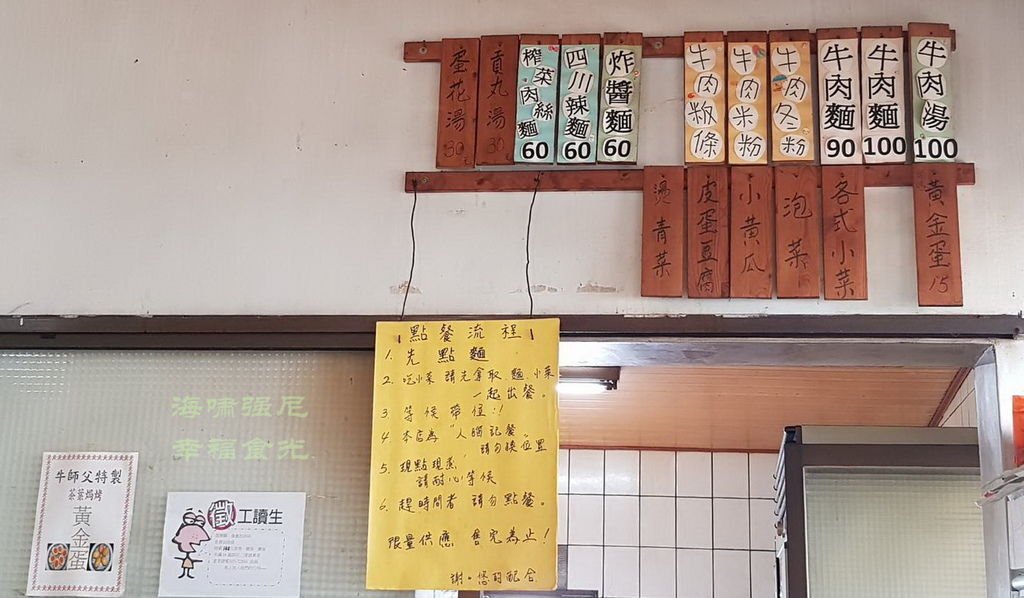 蛋花湯 30
貢丸湯 30
榨菜肉絲麵 60
四川辣麵 60
炸醬麵 60
牛肉粄條
牛肉米粉
牛肉冬粉
牛肉麵 90
牛肉麵 100
牛肉湯 100
燙青菜
皮蛋豆腐
小黃瓜
泡菜
各式小菜
黃金蛋 15
點餐流程
1. 先點麵
2. 吃小菜 請先拿取 麵.小菜
一起出餐。
3. 等候帶位!!
4. 本店為"人腦記餐"
請勿換位置
5. 現點現煮,
請耐心等候
6. 趕時間者 請勿點餐。
限量供應 售完為止!
謝。您的配合
海嘯强尼
幸福食光.
牛師父特製
茶葉焗烤
黃金蛋
徵工讀生